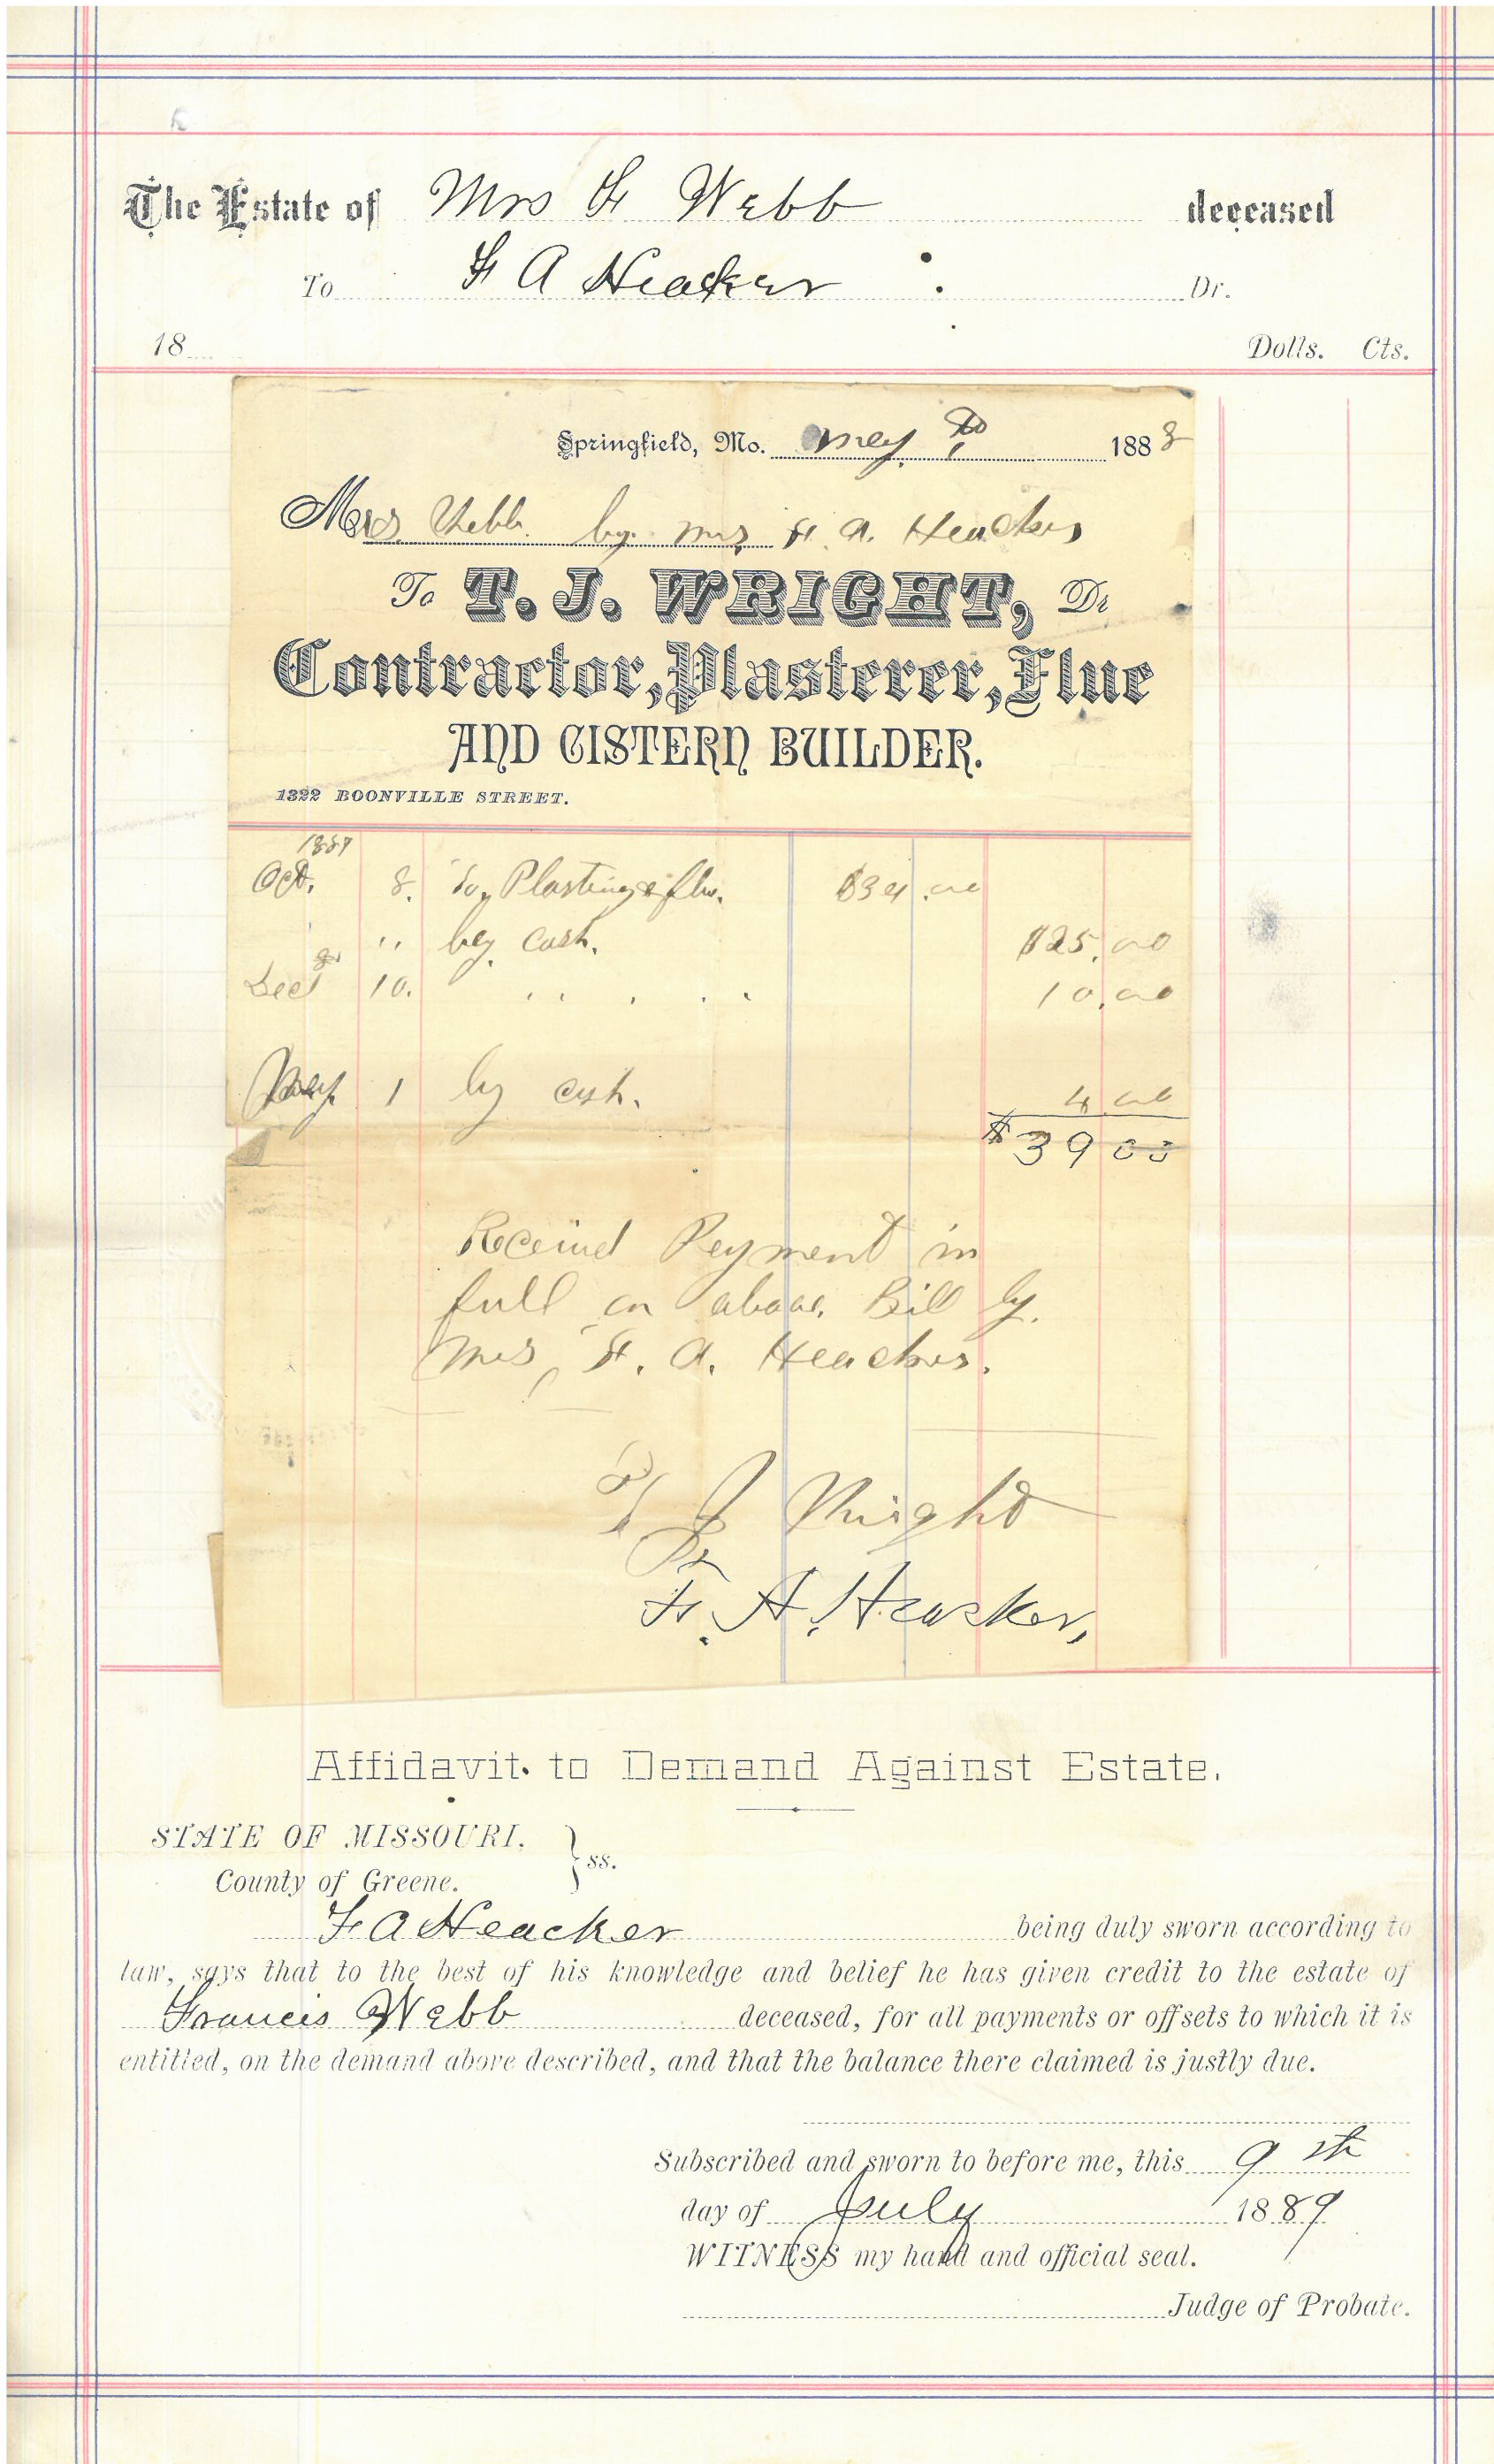 The Estate of Mrs F Webb deceased
To F A Heacker Dr.
18 Dolls. Cts.
Springfield, Mo. May 1888
Mrs Webb. by. Mrs F. A. Heacker
To T. J. WRIGHT, Dr
Contractor, Plasterer, Flue
AND CISTERN BUILDER.
1322 BOONVILLE STREET.
1887
Oct. 8. To, Plasting & flu. $39.00
" by cash. $25.00
Dec 10. " " 10.00
May 1 by cash. 4 00
$39 00
Received Payment in
full on above. Bill by.
Mrs, F. A. Heacker.
T J Wright
F. A. Heacker,
Affidavit. to Demand Against Estate.
STATE OF MISSOURI. } ss.
County of Greene.
F A Heacker being duly sworn according to
law, says that to the best of his knowledge and belief he has given credit to the estate of
Francis Webb deceased, for all payments or offsets to which it is
entitled, on the demand above described, and that the balance there claimed is justly due.
Subscribed and sworn to before me, this 9th
day of July 1889
WITNESS my hand and official seal.
Judge of Probate.